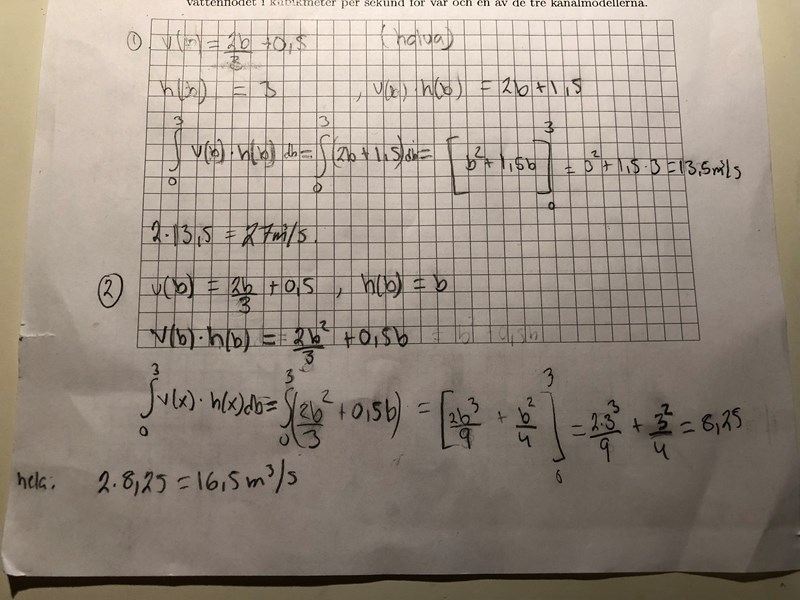 vattenflödet i kubikmeter per sekund för var och en av de tre kanalmodellerna.
① v(b) = 2b/3 + 0,5 (halva)
h(b) = 3 , v(b) · h(b) = 2b + 1,5
∫₀³ v(b) · h(b) db = ∫₀³ (2b + 1,5) db = [b² + 1,5b]₀³ = 3² + 1,5 · 3 = 13,5 m³/s
2 · 13,5 = 27 m³/s.
② v(b) = 2b/3 + 0,5 , h(b) = b
v(b) · h(b) = 2b²/3 + 0,5b
∫₀³ v(x) · h(x) db = ∫₀³ (2b²/3 + 0,5b) = [2b³/9 + b²/4]₀³ = 2·3³/9 + 3²/4 = 8,25
hela: 2 · 8,25 = 16,5 m³/s